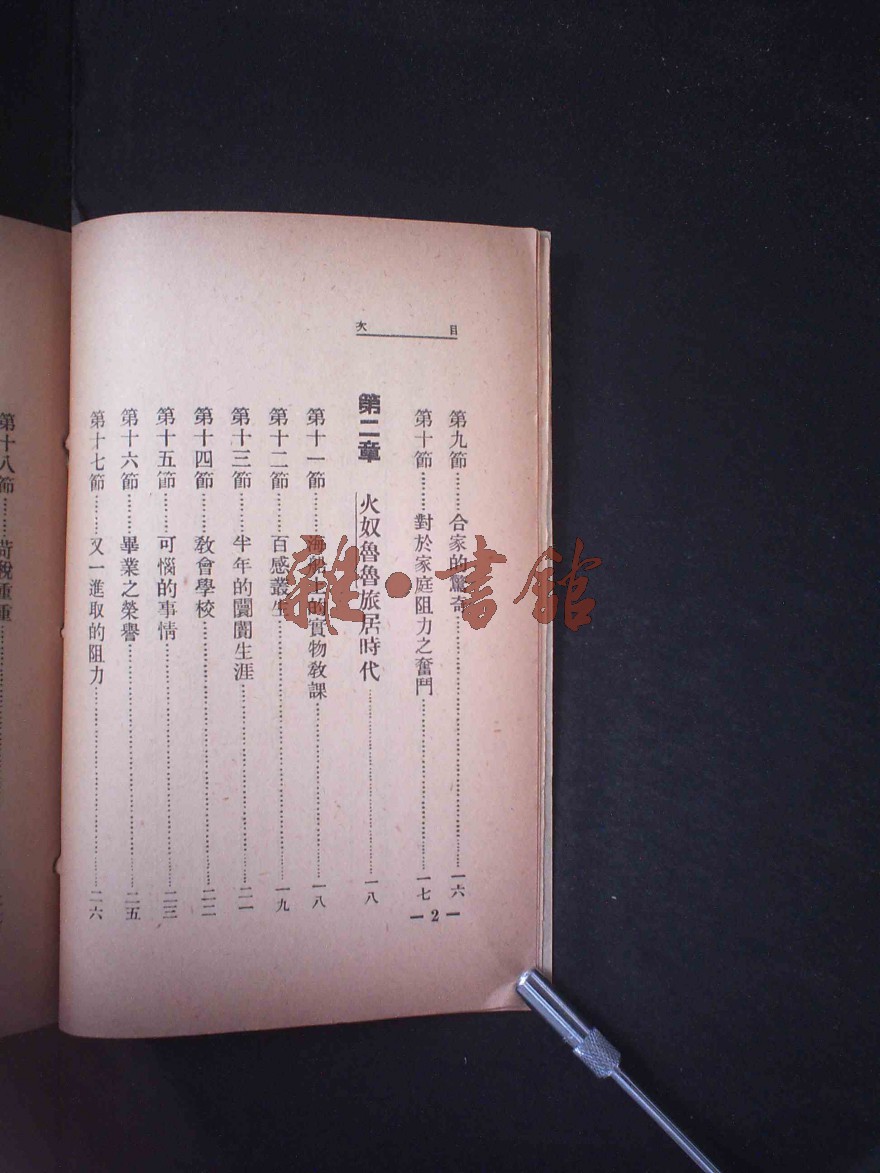 目次
第九節……合家的驚奇……一六
第十節……對於家庭阻力之奮鬥……一七
第二章 火奴魯魯旅居時代……一八
第十一節……海船上的實物教課……一八
第十二節……百感叢生……一九
第十三節……半年的闤闠生涯……二一
第十四節……教會學校……二二
第十五節……可惱的事情……二三
第十六節……畢業之榮譽……二五
第十七節……又一進取的阻力……二六
— 2 —
第十八節……苛稅重重
雜·書館